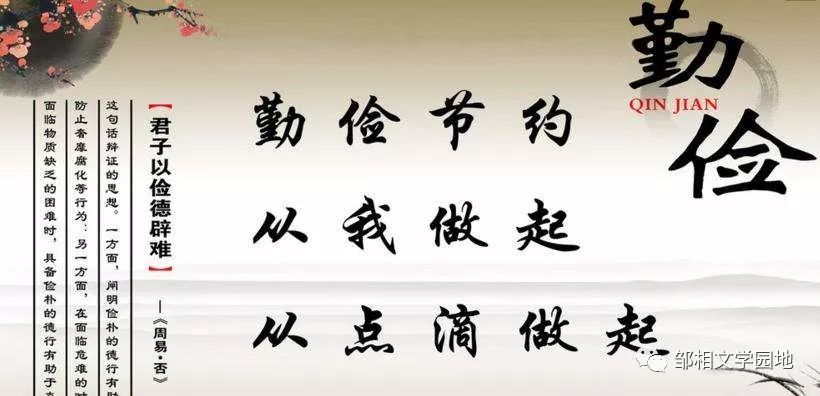 勤俭
QIN JIAN
勤俭节约
从我做起
从点滴做起
【君子以俭德辟难】
—《周易·否》
这句话辩证的思想。一方面，阐明俭朴的德行有助
防止奢靡腐化等行为；另一方面，在面临危难的时
面临物质缺乏的困难时，具备俭朴的德行有助于
邹相文学园地